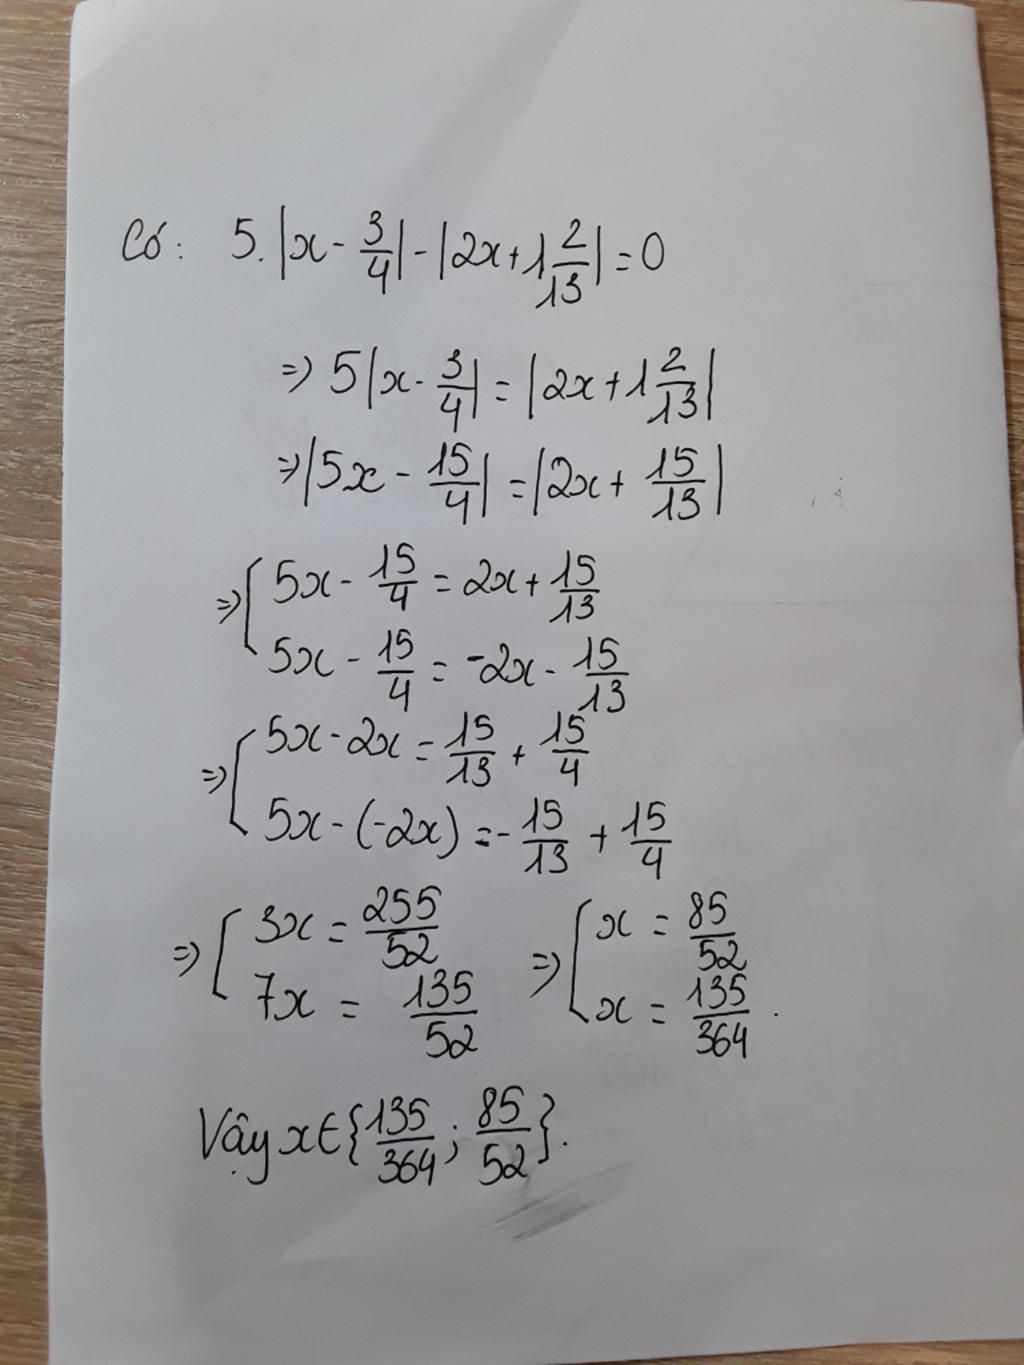 Có: 5.|x - 3/4| - |2x + 1 2/13| = 0
=> 5|x - 3/4| = |2x + 1 2/13|
=> |5x - 15/4| = |2x + 15/13|
=> [ 5x - 15/4 = 2x + 15/13
5x - 15/4 = -2x - 15/13
=> [ 5x - 2x = 15/13 + 15/4
5x - (-2x) = - 15/13 + 15/4
=> [ 3x = 255/52 => [ x = 85/52
7x = 135/52 x = 135/364 .
Vậy x ∈ {135/364 ; 85/52}.